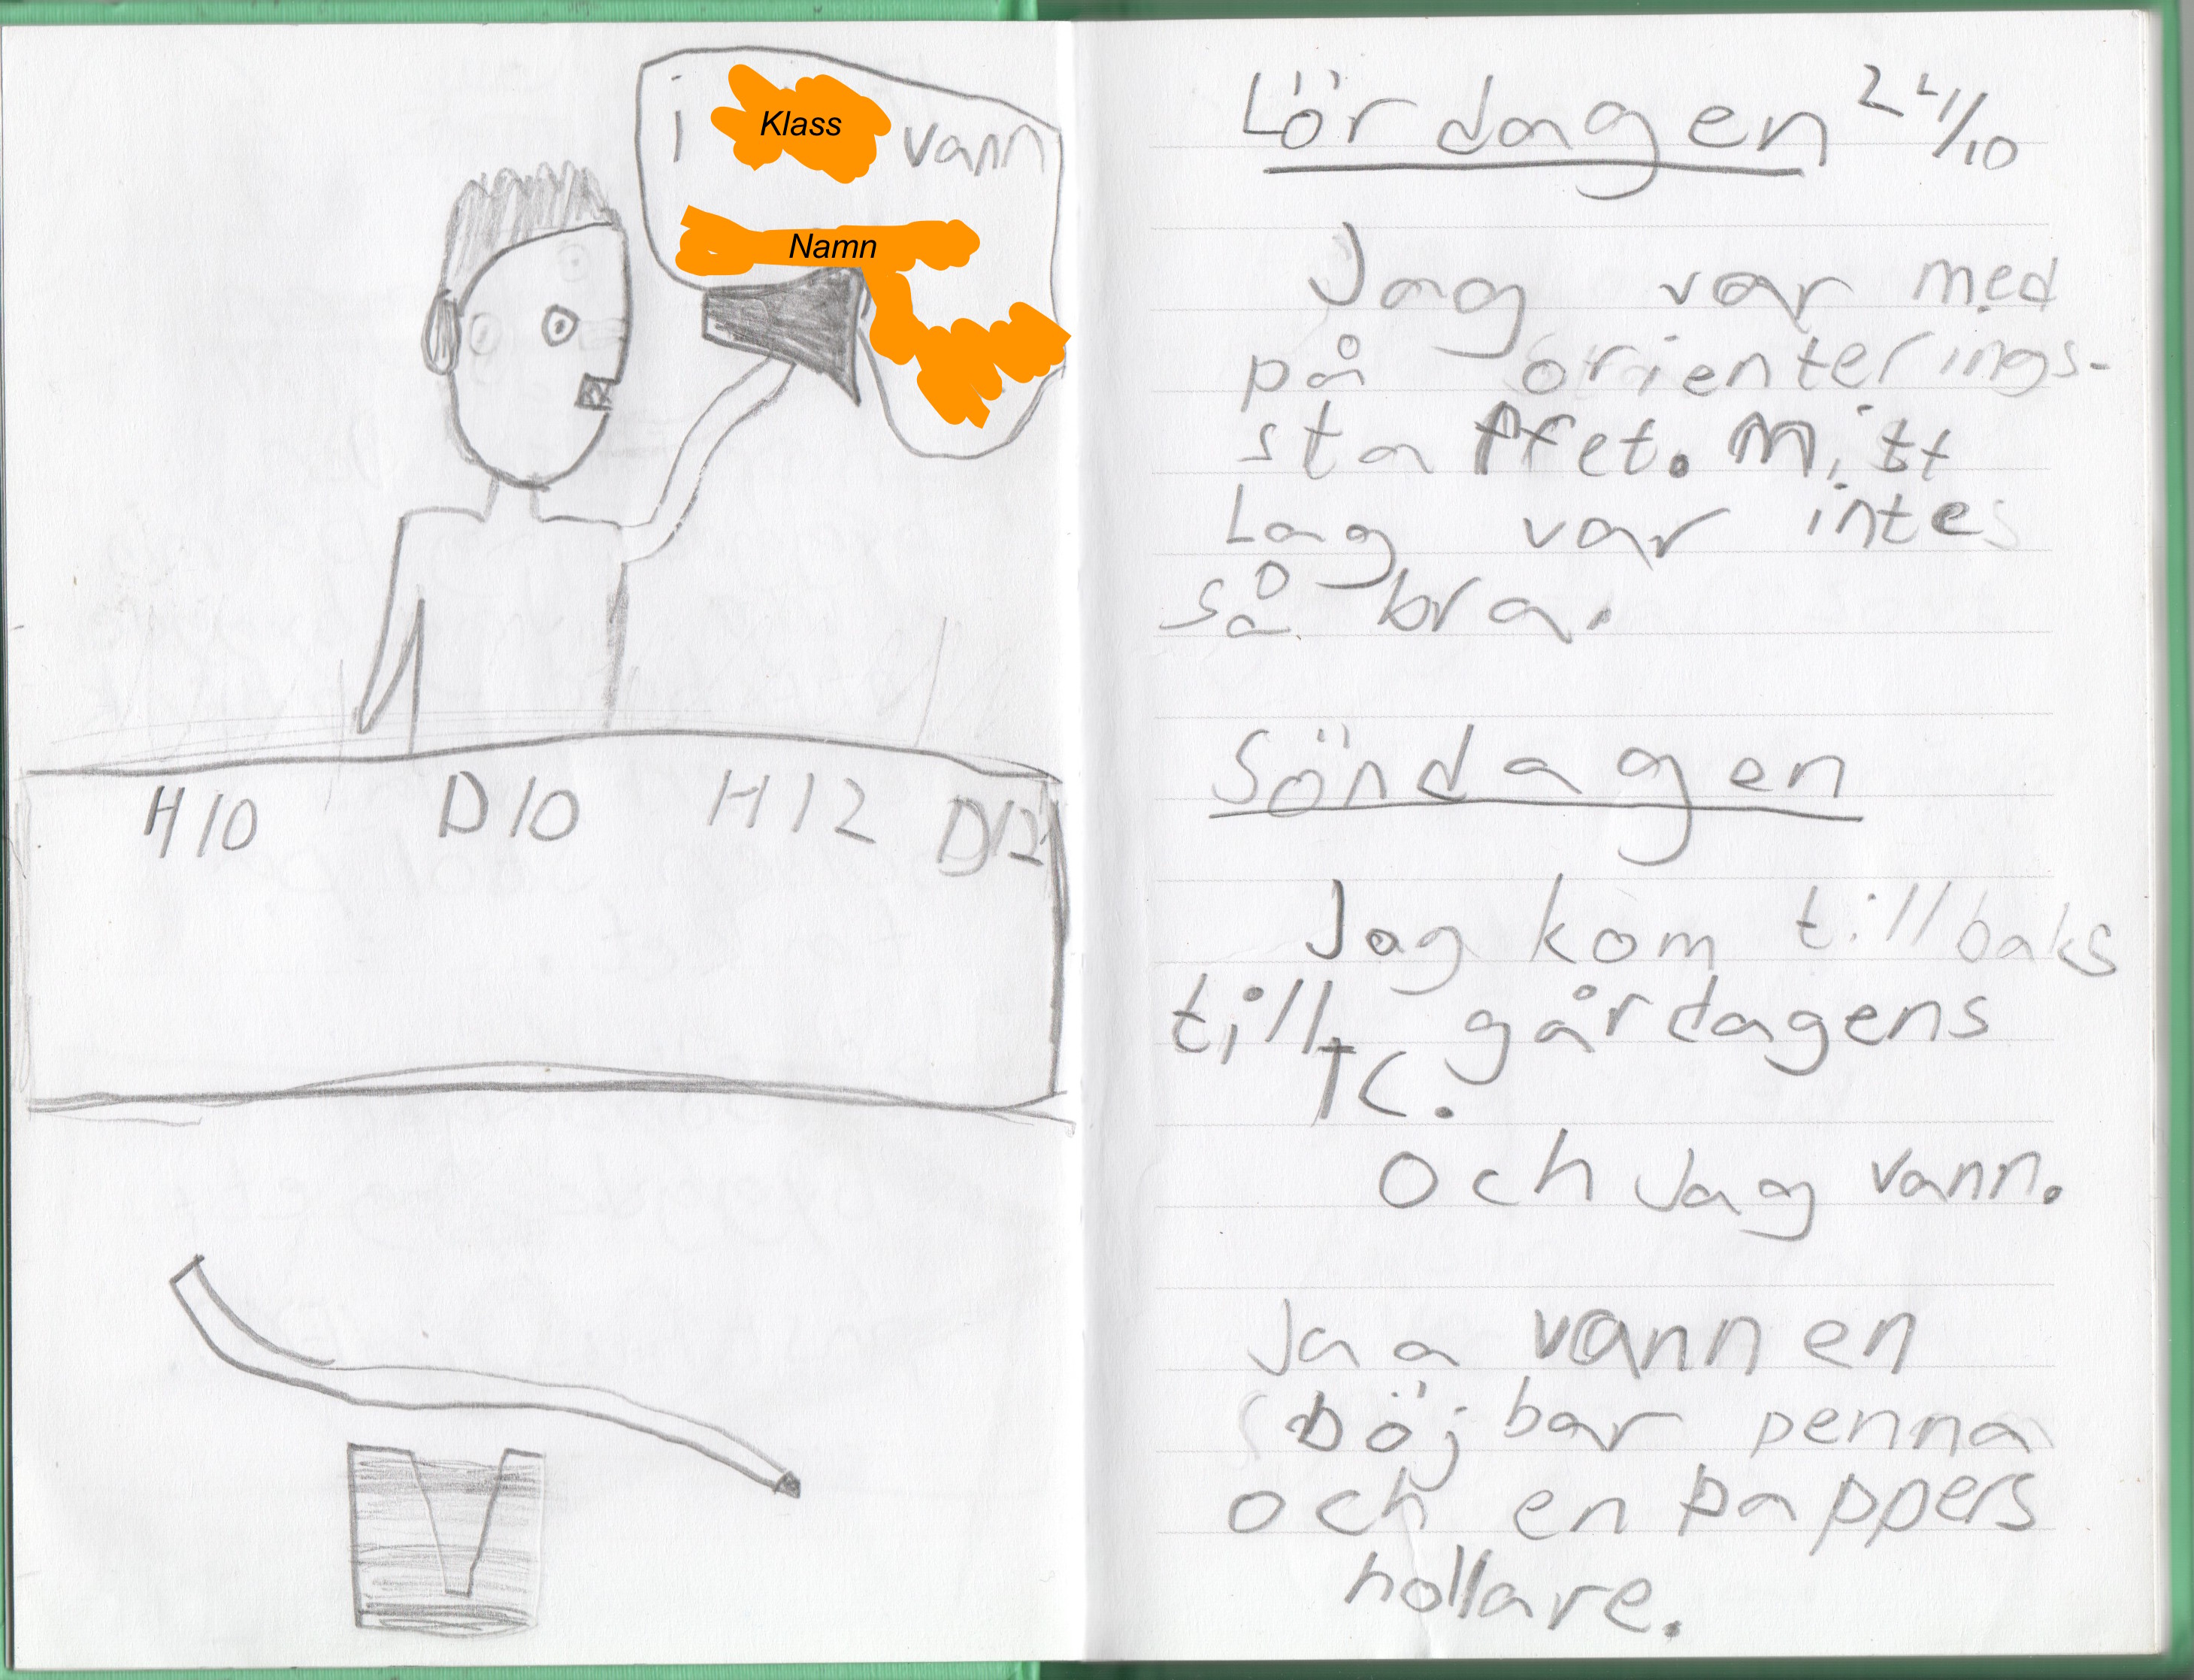 i Klass vann
Namn
H10 D10 H12 D12
Lördagen 24/10
Jag var med
på orienterings-
staffet. Mitt
Lag var inte
så bra.
Söndagen
Jag kom tillbaks
till gårdagens
TC.
Och Jag vann.
Jag vann en
Böjbar penna
och en pappers
hollare.